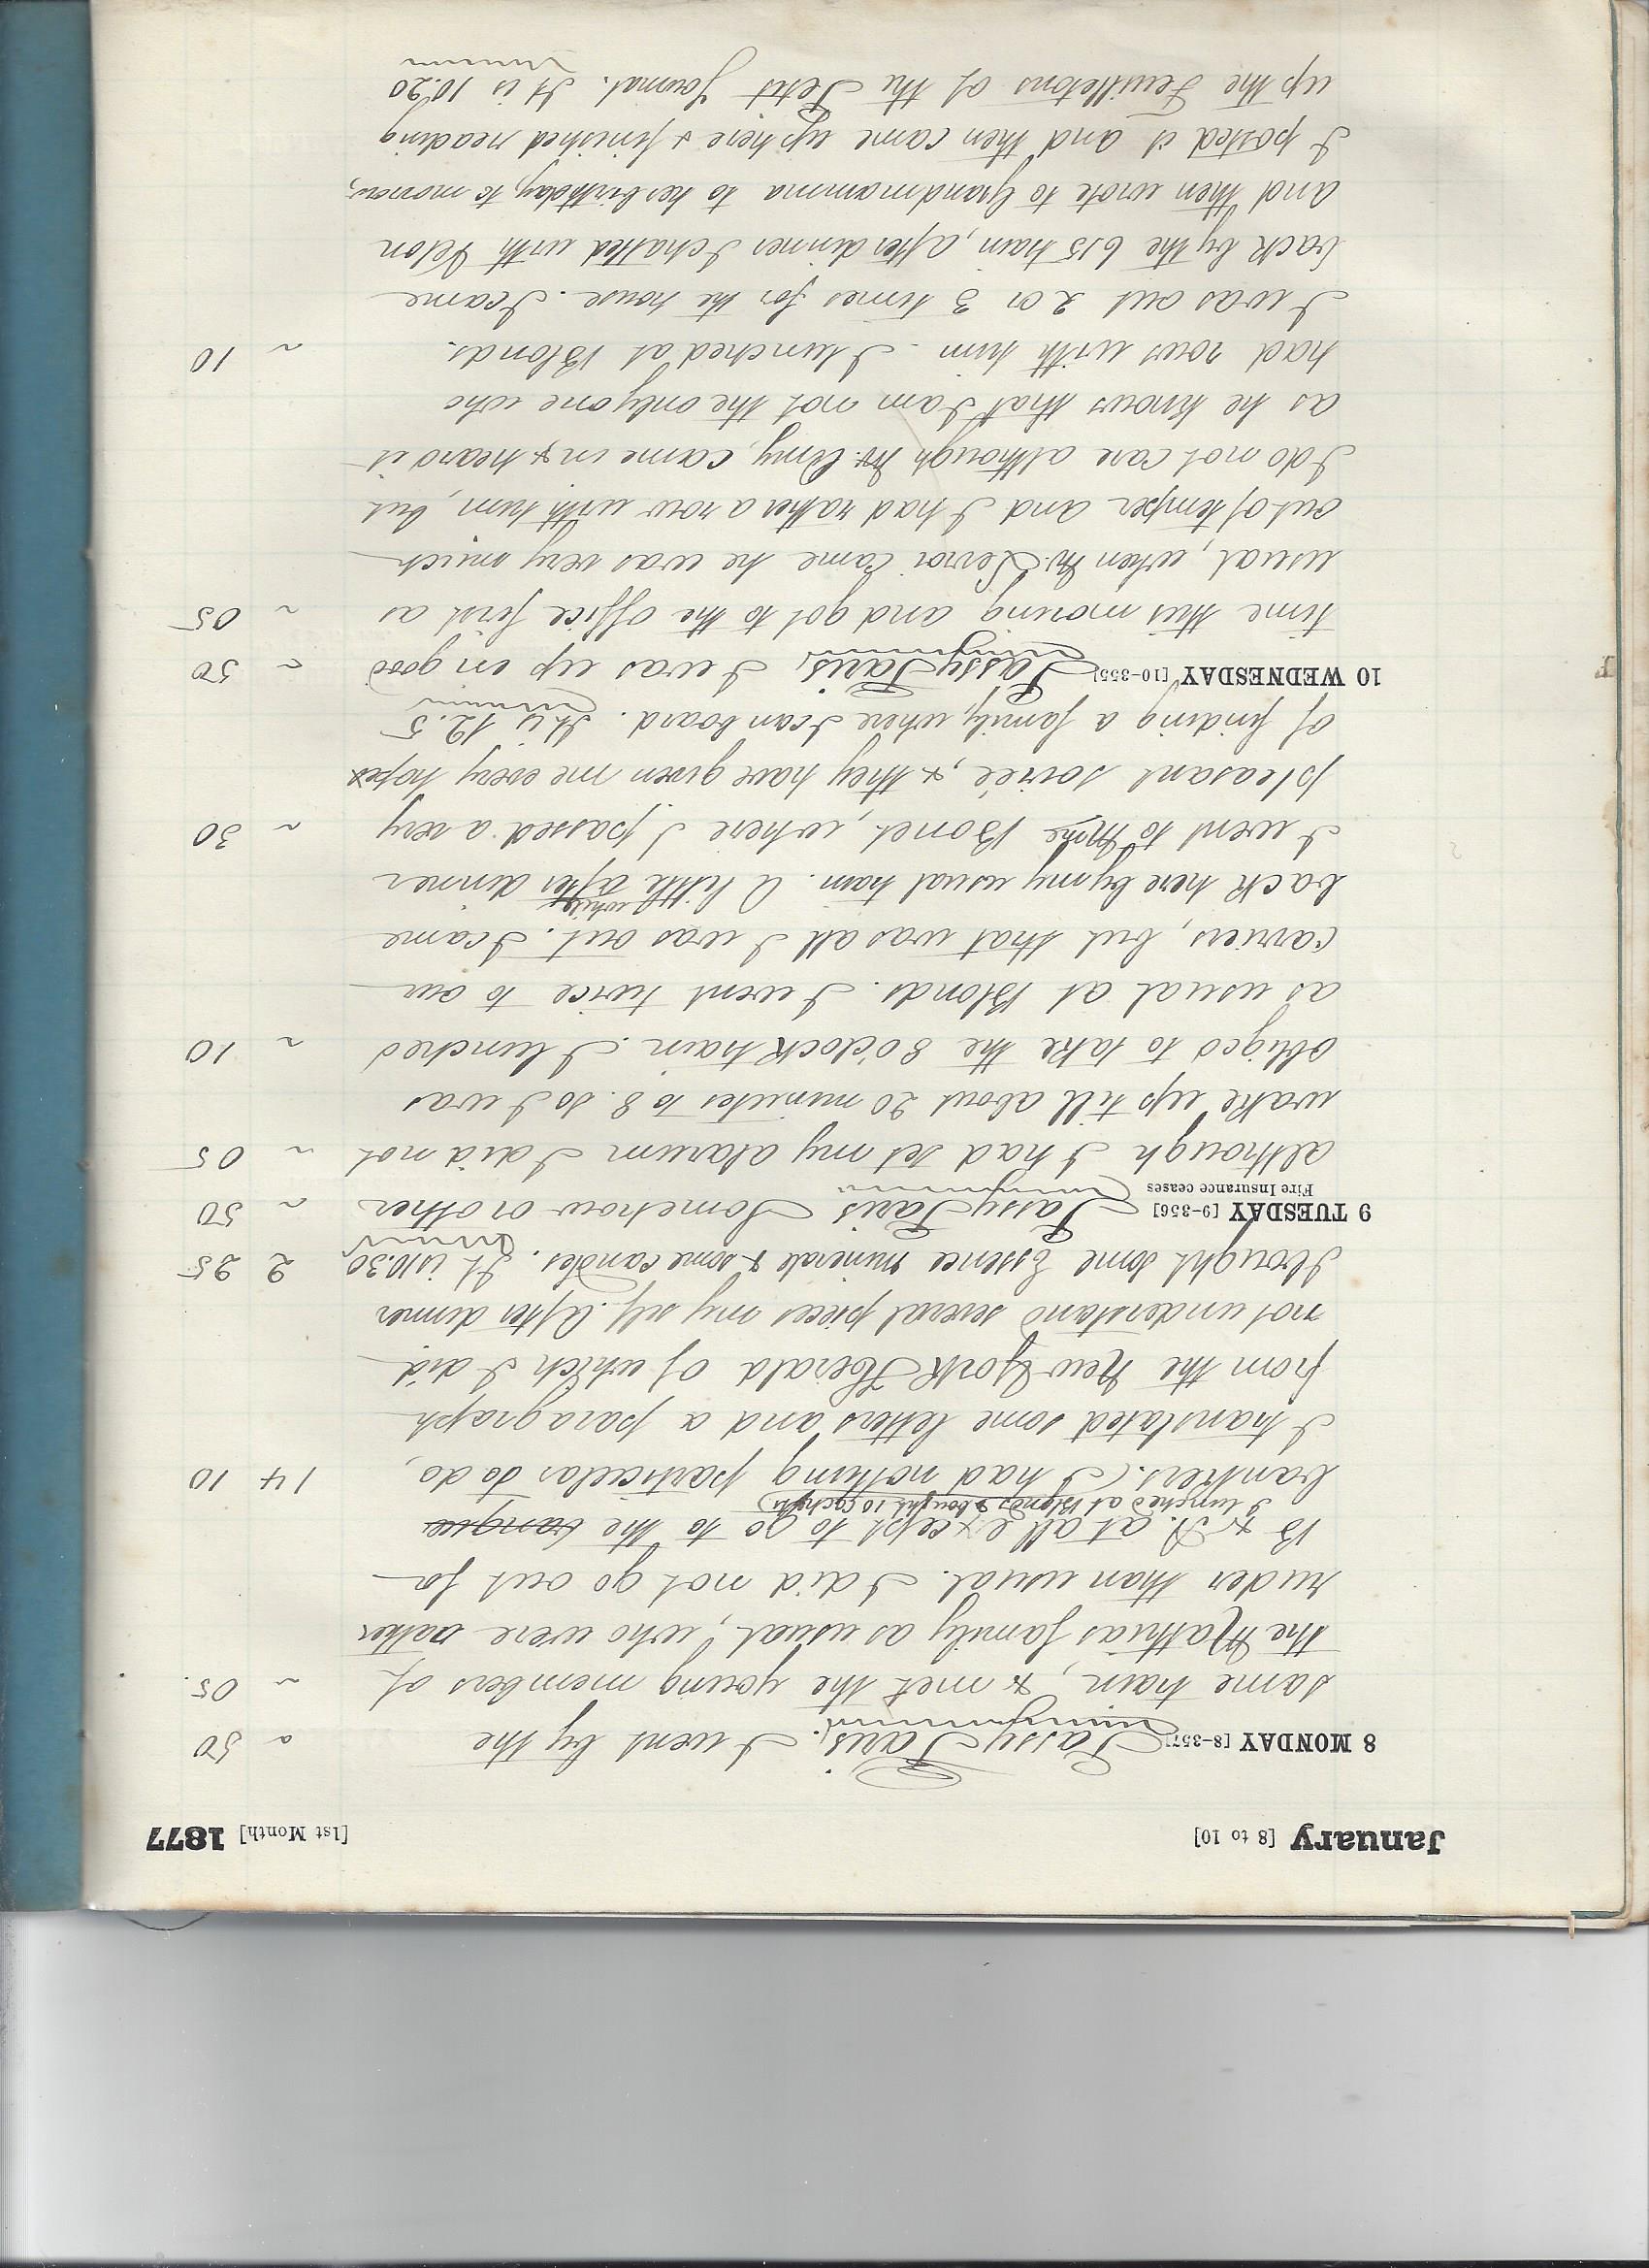 January [8 to 10] [1st Month] 1877
8 MONDAY [8-357] Passy Paris. I went by the ~ 50
same train, & met the young members of ~ 05.
the Mathias family as usual, who were rather
ruder than usual. I did not go out for
B & A. at all except to go to the banque
I lunched at Blonds & bought 10 cachets
bankers. (I had nothing particular to do, 14 10
I translated some letters and a paragraph
from the New York Herald of which I did
not understand several pieces my self. After dinner
I bought some Essence minerale & some candles. It is 10.30 2 25
9 TUESDAY [9-356] Passy Paris Somehow or other ~ 50
Fire Insurance ceases
although I had set my alarum I did not ~ 05
wake up till about 20 minutes to 8. So I was
obliged to take the 8 o'clock train. I lunched ~ 10
as usual at Blonds. I went twice to our
carriers, but that was all I was out. I came
back here by my usual train. A little while after dinner
I went to Mme Bonet, where I passed a very ~ 30
pleasant soirée, & they have given me every hopes
of finding a family where I can board. It is 12.5
10 WEDNESDAY [10-355] Passy Paris, I was up in good ~ 50
time this moring and got to the office first as ~ 05
usual, when Mr. Leroi came he was very much
out of temper and I had rather a row with him, but
I do not care although Mr. Amy, came in & heard it
as he knows that I am not the only one who
had rows with him. I lunched at Blonds. ~ 10
I was out 2 or 3 times for the house. I came
back by the 6.15 train, after dinner I chatted with Pelon
and then wrote to Grandmamma to her birthday to morrow,
I posted it and then came up here & finished reading
up the Feuilletons of the Petit Journal. It is 10.20